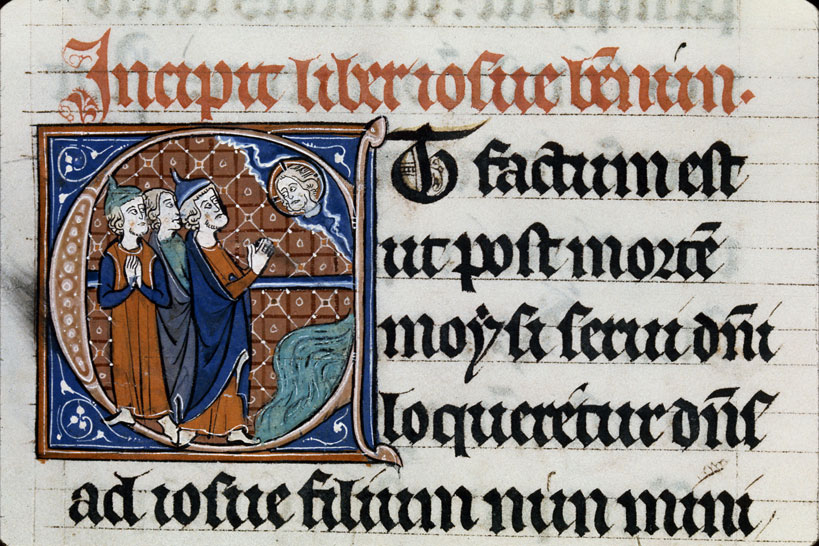 Incipit liber iosue bēnun.
ET factum est
ut post mortē
moẏsi serui dn̄i
loqueretur dn̄s
ad iosue filium nun mini